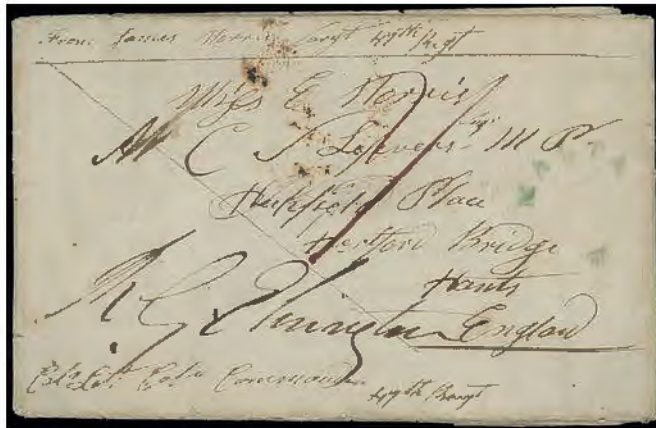 From James Morris Sergt 49th Regt
Miss E Morris
Mr C S Lefevers Esqr M P
Heckfield Place
Hertford Bridge
Hants
England
Lt Coln Command
49th Regt